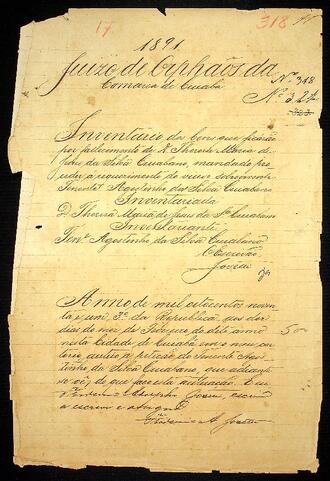 17
318
1891
Juizo de Orphaõs da
Comarca de Cuiabá
Nº 318
Nº 324
323
Inventario dos bens que ficárão
por fallecimento de D. Thereza Maria de
Jesus da Silva Cuiabano, mandado pro
ceder á requerimento do viuvo sobrevivente
Tenente Agostinho da Silva Cuiabano
Inventariada
D. Thereza Maria de Jesus da Sª Cuiabano
Inventariante
Tenº Agostinho da Silva Cuiabano
O Escrivão
Anno de mil oitocentos noven
ta e um, 3º da Republica, aos
dias do mez de Fevereiro do dito anno
nesta Cidade de Cuiabá em o meu car
torio, autúo a petição do Tenente Agos
tinho da Silva Cuiabano, que adiante
se vê; de que faço esta autuação. Eu
escrevi
500